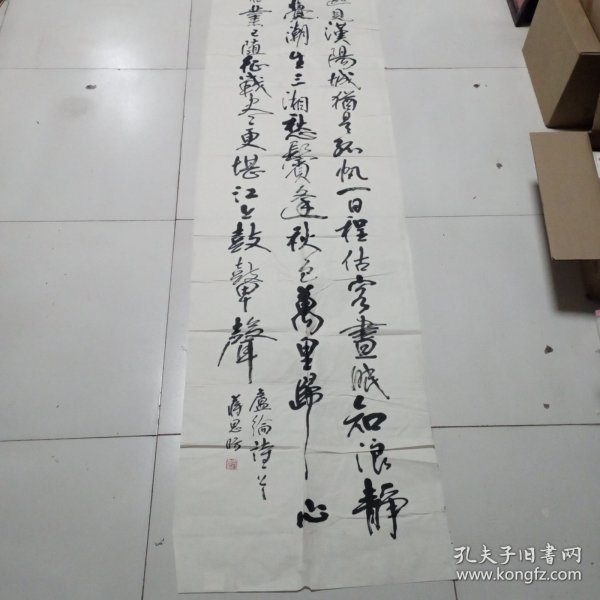 見漢陽城猶是孤帆一日程估客晝眠知浪靜
潮生三湘愁鬢逢秋色萬里歸心
業已随征戰更堪江上鼓鼙聲
盧綸詩
蔣思
孔夫子旧書网
www.kongfz.com